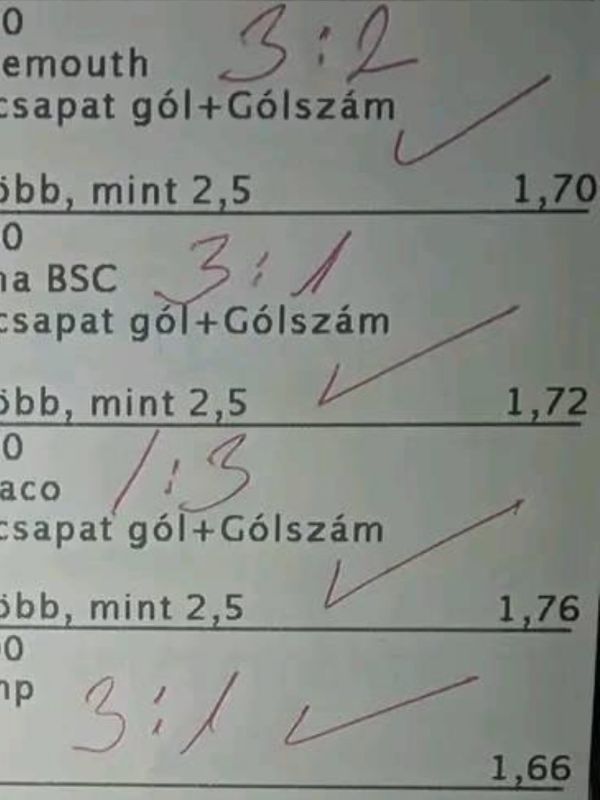 0
emouth 3:2
csapat gól+Gólszám
öbb, mint 2,5 1,70
0
na BSC 3:1
csapat gól+Gólszám
öbb, mint 2,5 1,72
0
aco 1:3
csapat gól+Gólszám
öbb, mint 2,5 1,76
00
mp
3:1
1,66